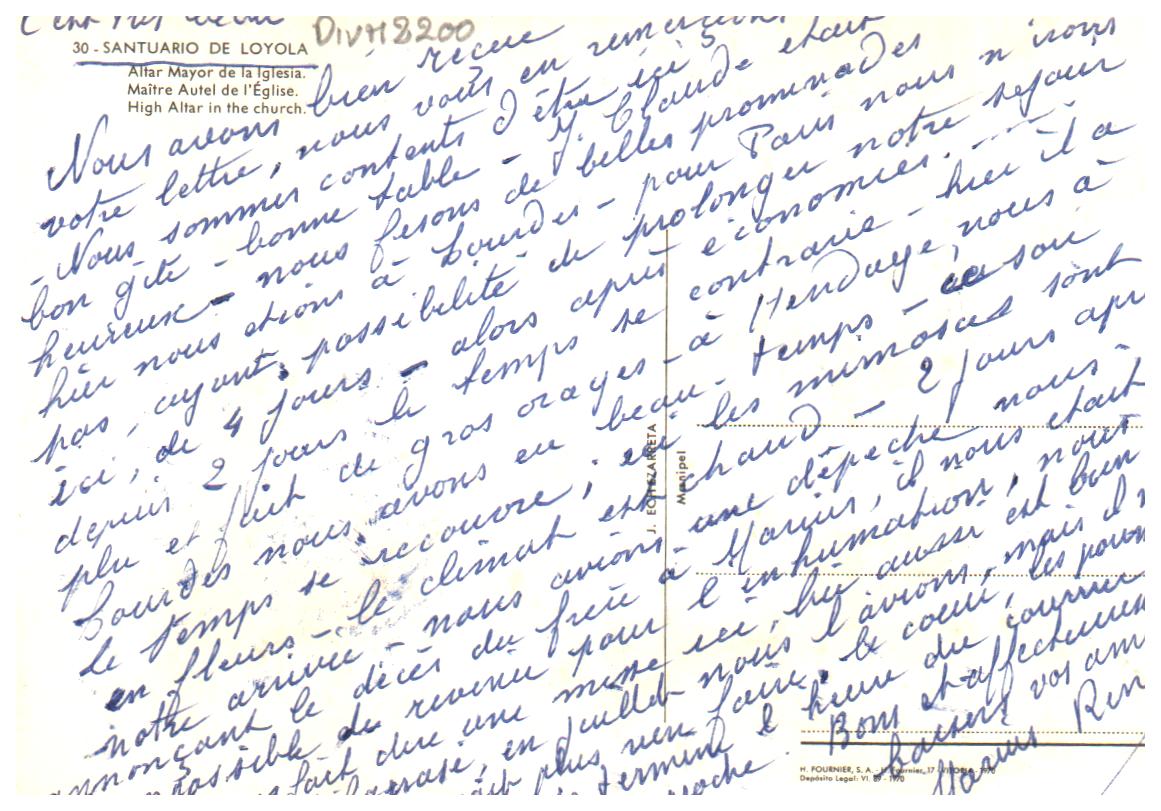 C'est très
DIVH8200
30 - SANTUARIO DE LOYOLA
Altar Mayor de la Iglesia.
Maître Autel de l'Église.
High Altar in the church.
Nous avons bien recue
votre lettre, nous vous en remercions
- Nous sommes contents d'être ici
bon gite - bonne table - J. Claude etait
heureux - nous fesons de belles prominades
hier nous etions à Lourdes - pour Paris nous n'irons
pas, ayant possibilité de prolonger notre sejour
ici, de 4 jours - alors après economies. - - -
depuis 2 jours le temps se contrarie - hier il a
plu et fait de gros orages - à Hendaye, nous à
Lourdes nous avons eu beau temps - ce soir
le temps se recouvre, les mimosas sont
en fleurs - le climat est chaud - 2 jours apr
notre arrivée - nous avions une dêpeche nous
annonçant le décès du frère à Marius, il nous etait
impossible de revenir pour l'inhumation, nous
fait dire une messe ici, lui aussi est bien
en juillet nous l'avions, mais il n
plus rien faire, le coeur, les poum
termine l'heure du courrier
approche. Bons et affectueux
baisers vos am
Marius Ren
J. ECHEZARRETA
Manipel
H. FOURNIER, S. A. - H. Fournier, 17 - VITORIA - 1970
Depósito Legal: VI. 89 - 1970